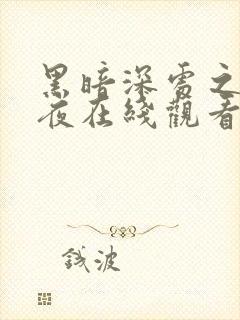 黑暗深雪之
夜在綫觀看
钱波